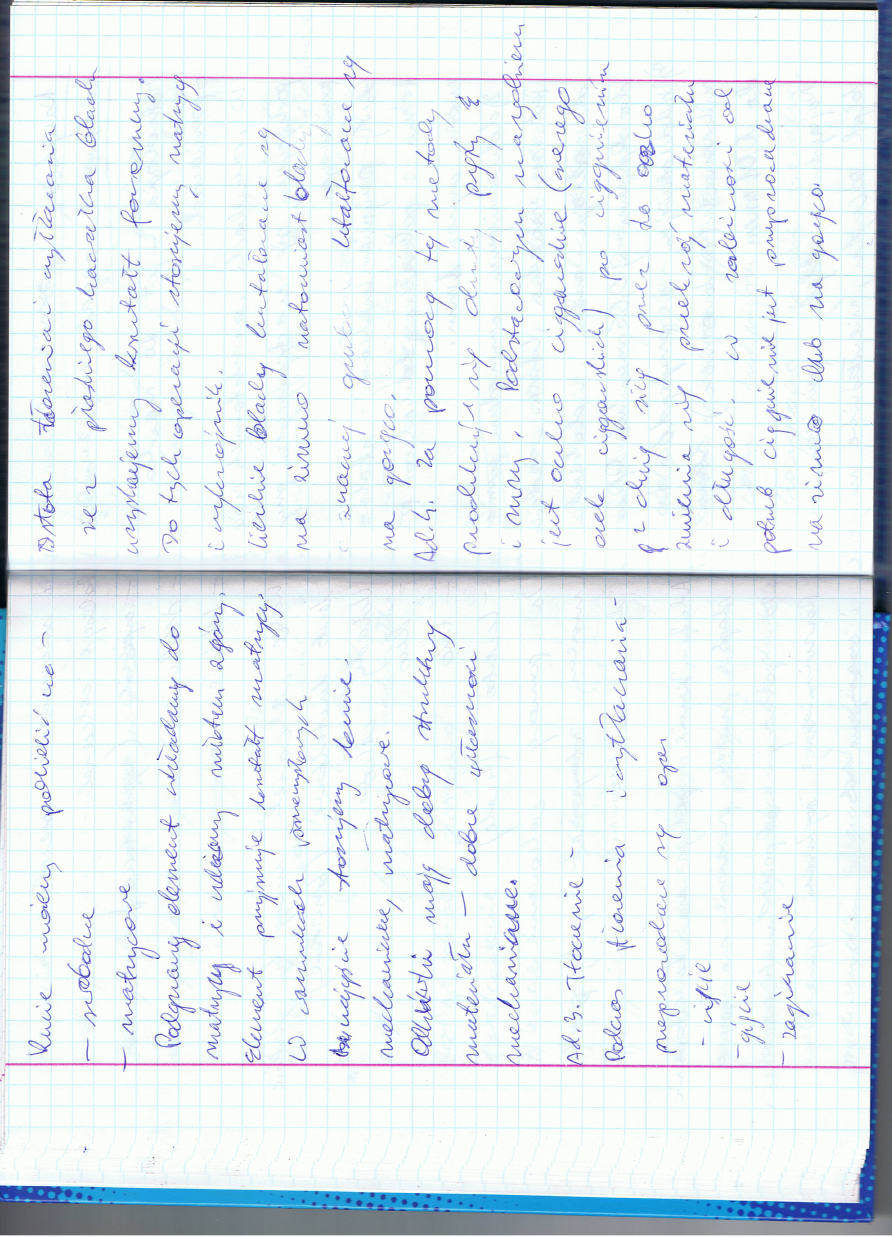 Kucie możemy podzielić na -
- swobodne
- matrycowe
Podgrzany element wkładamy do
matrycy i uderzamy młotem z góry.
Element przyjmuje kształt matrycy.
W warunkach przemysłowych
stosujemy kucie
mechaniczne, matrycowe.
Odkuwki mają dobrą strukturę
materiału - dobre własności
mechaniczne.
Ad. 3. Tłoczenie -
Podczas tłoczenia i wytłaczania -
przeprowadzane są ope.
- cięcie
- gięcie
- zaginanie
Istota tłoczenia i wytłaczania
że z płaskiego kawałka blachy
uzyskujemy kształt przestrzenny.
Do tych operacji stosujemy matryce
i wykrojnik.
Cienkie blachy kształtowane są
na zimno natomiast blachy
o znacznej grubo kształtowane są
na gorąco.
Ad. 4. Za pomocą tej metody
produkuje się druty, pręty
i rury. Podstawowym narzędziem
jest oczko ciągarskie (szereg
oczek ciągarskich) po ciągnieniu
się przez to oczko
zmienia się przekrój materiału
i długość. W zależności od
potrzeb ciągnienie jest przeprowadzane
na zimno lub na gorąco.